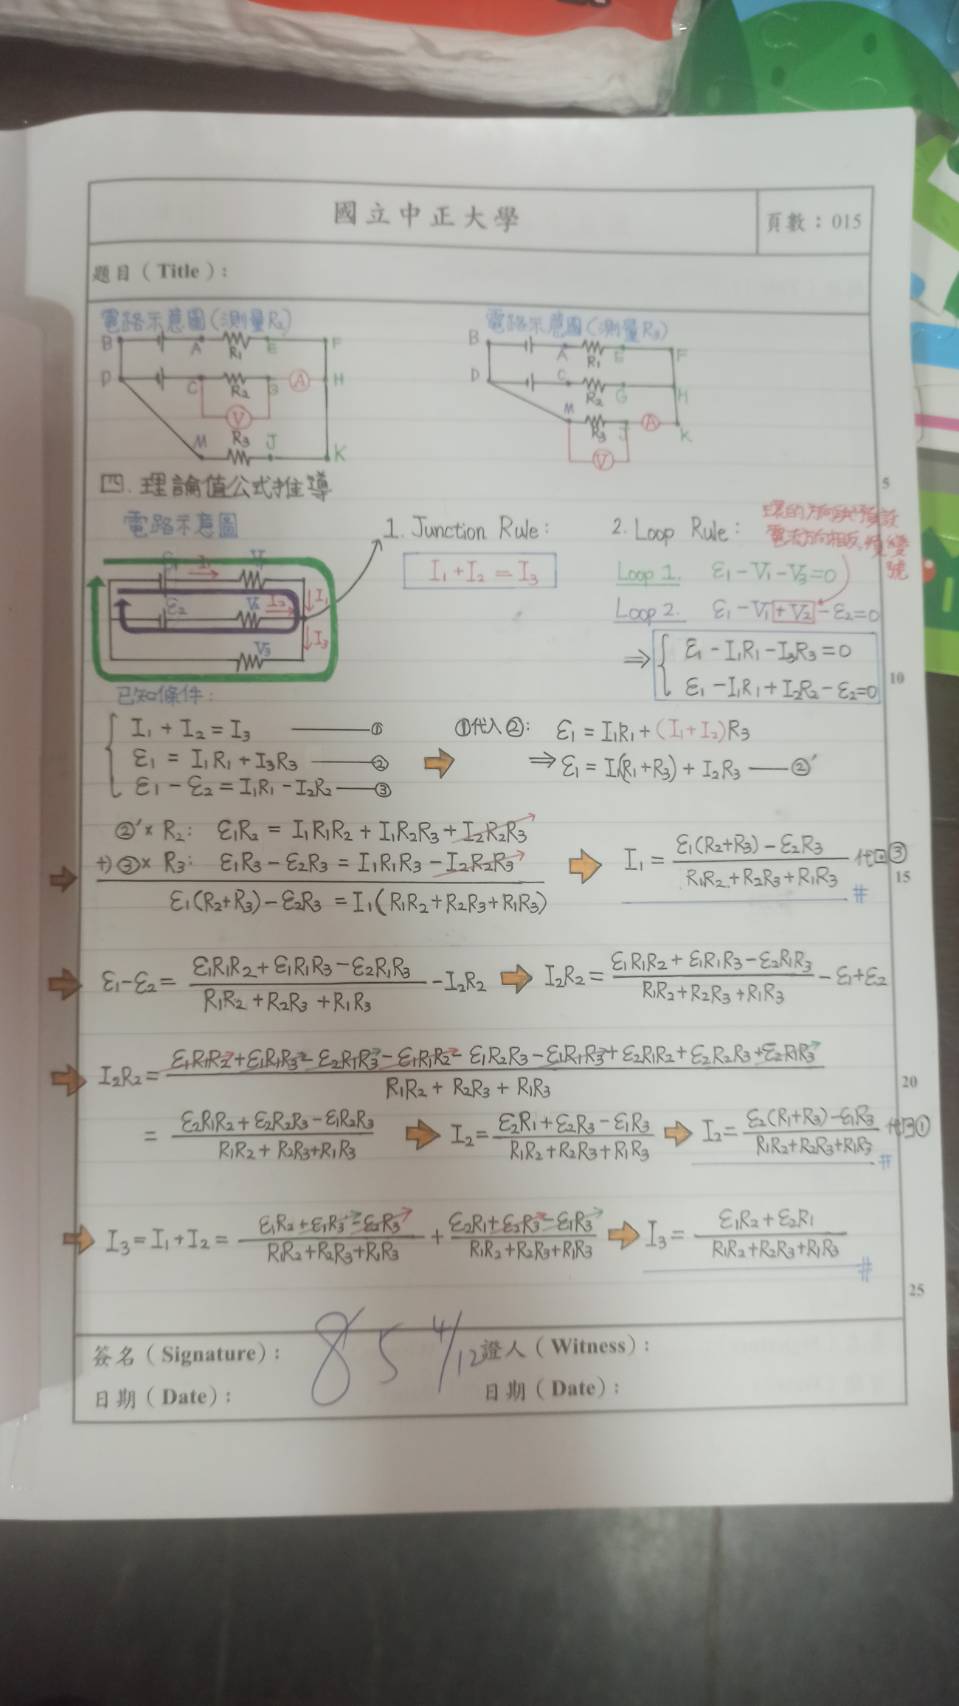 國立中正大學
頁數：015
題目（Title）：
電路示意圖(測量R₂)
電路示意圖(測量R₃)
B A R₁ E F
D C R₂ G A H
V
M R₃ J K
B A R₁ E F
D C R₂ G H
M R₃ J A K
V
四. 理論值公式推導
5
電路示意圖
1. Junction Rule:
I₁+I₂=I₃
2. Loop Rule:
Loop 1. ε₁-V₁-V₃=0
Loop 2. ε₁-V₁+V₂-ε₂=0
⇒ { ε₁-I₁R₁-I₃R₃=0
ε₁-I₁R₁+I₂R₂-ε₂=0
10
ε₁ I₁ V₁
ε₂ V₂ I₂ I₁
V₃ I₃
已知條件:
I₁+I₂=I₃ ——①
ε₁=I₁R₁+I₃R₃ ——②
ε₁-ε₂=I₁R₁-I₂R₂——③
①代入②: ε₁=I₁R₁+(I₁+I₂)R₃
⇒ε₁=I₁(R₁+R₃)+I₂R₃——②'
②'×R₂: ε₁R₂=I₁R₁R₂+I₁R₂R₃+I₂R₂R₃
+)③×R₃: ε₁R₃-ε₂R₃=I₁R₁R₃-I₂R₂R₃
ε₁(R₂+R₃)-ε₂R₃=I₁(R₁R₂+R₂R₃+R₁R₃)
I₁=ε₁(R₂+R₃)-ε₂R₃/R₁R₂+R₂R₃+R₁R₃ 代回③
#
15
ε₁-ε₂=ε₁R₁R₂+ε₁R₁R₃-ε₂R₁R₃/R₁R₂+R₂R₃+R₁R₃-I₂R₂ ⇒ I₂R₂=ε₁R₁R₂+ε₁R₁R₃-ε₂R₁R₃/R₁R₂+R₂R₃+R₁R₃-ε₁+ε₂
I₂R₂=ε₁R₁R₂+ε₁R₁R₃-ε₂R₁R₃-ε₁R₁R₂-ε₁R₂R₃-ε₁R₁R₃+ε₂R₁R₂+ε₂R₂R₃+ε₂R₁R₃/R₁R₂+R₂R₃+R₁R₃
20
=ε₂R₁R₂+ε₂R₂R₃-ε₁R₂R₃/R₁R₂+R₂R₃+R₁R₃ ⇒ I₂=ε₂R₁+ε₂R₃-ε₁R₃/R₁R₂+R₂R₃+R₁R₃ ⇒ I₂=ε₂(R₁+R₃)-ε₁R₃/R₁R₂+R₂R₃+R₁R₃ 代回①
#
I₃=I₁+I₂=ε₁R₂+ε₁R₃-ε₂R₃/R₁R₂+R₂R₃+R₁R₃+ε₂R₁+ε₂R₃-ε₁R₃/R₁R₂+R₂R₃+R₁R₃ ⇒ I₃=ε₁R₂+ε₂R₁/R₁R₂+R₂R₃+R₁R₃
#
25
簽名（Signature）：
85 4/12
證人（Witness）：
日期（Date）：
日期（Date）：